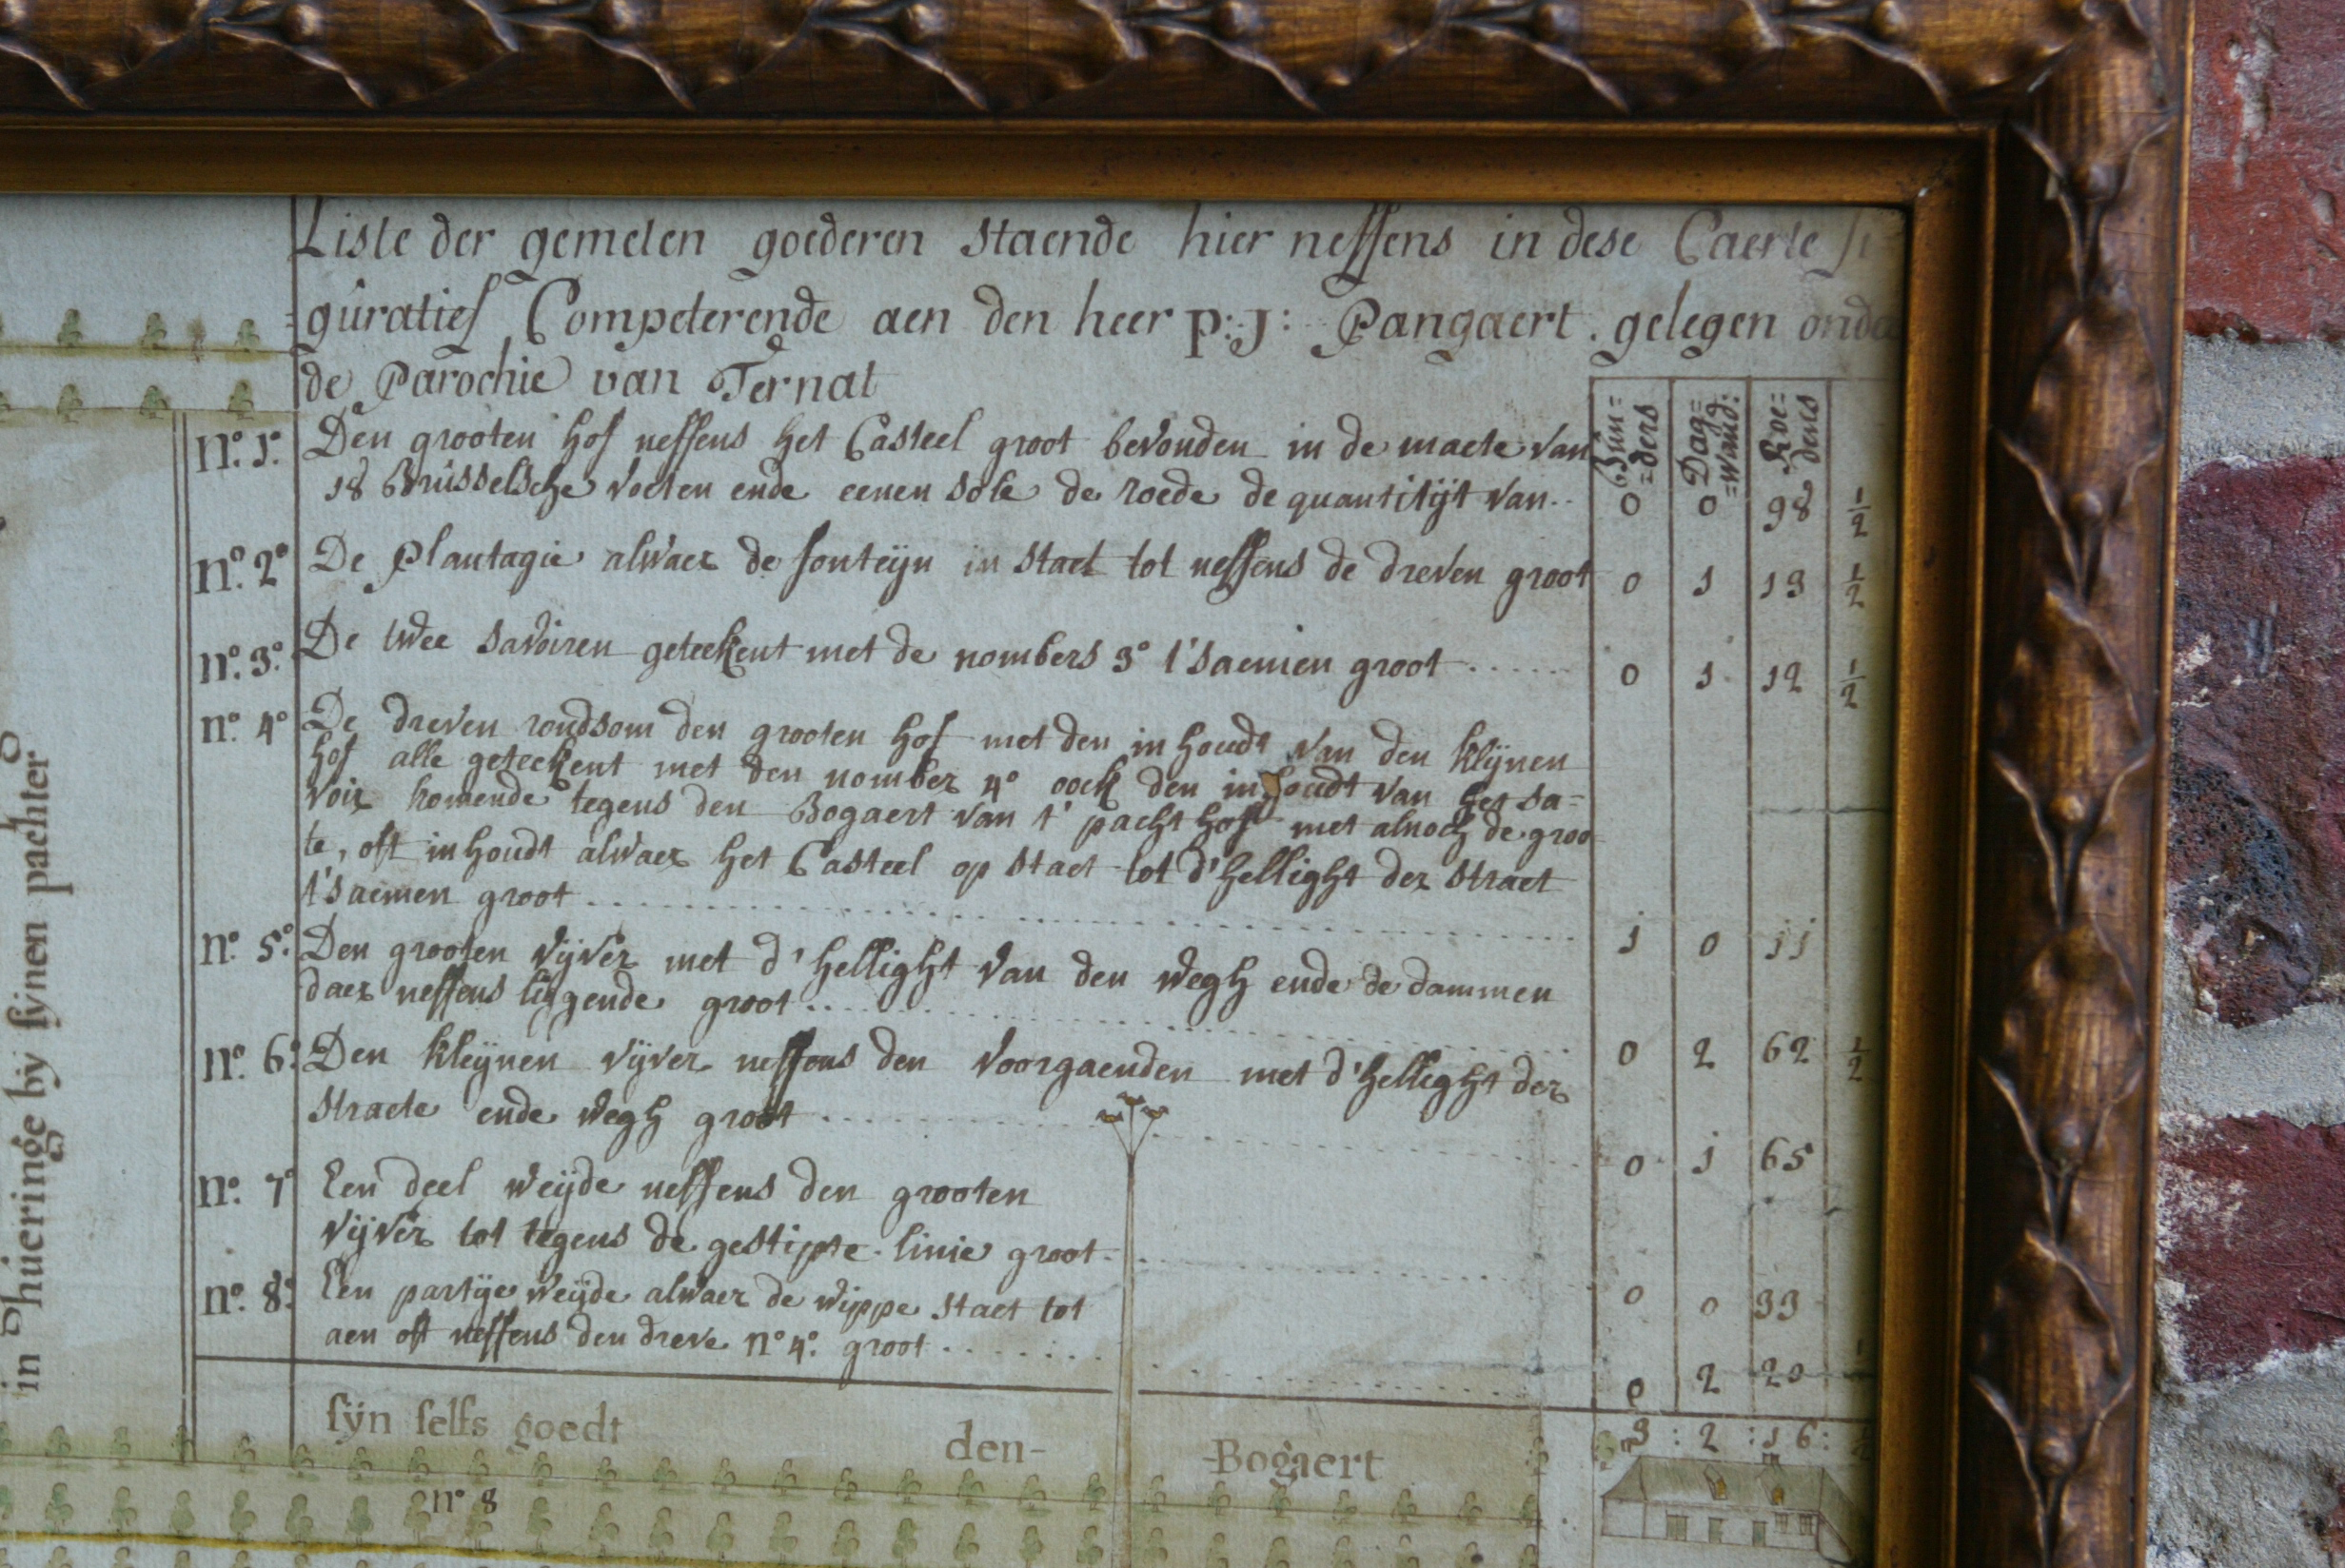 Liste der gemeten goederen staende hier neffens in dese Caerte fi=
=guratief Competerende aen den heer p:J: Pangaert. gelegen onder
de Parochie van Ternat
Bun=
=ders
Dag=
=wand:
Roe=
dens
N.º 1º. Den grooten hof neffens het Casteel groot bevonden in de maete van
18 Brusselsche voeten ende eenen sole de roede de quantitijt van.. 0 0 98 1/2
nº. 2º De Plantagie alwaer de fonteijn in staet tot neffens de dreven groot 0 1 19 1/2
nº. 3º. De twee savoiren geteekent met de nombers 3º t'saemen groot ...... 0 1 12 1/2
nº. 4º De dreven rondsom den grooten hof met den inhoudt van den klijnen
hof alle geteekent met den nomber 4º oock den inhoudt van het sa=
voir komende tegens den Bogaert van t' pacht hof met alnoch de groo
te, oft inhoudt alwaer het Casteel op staet tot d'hellight der straet
t'saemen groot ........ 1 0 11
nº. 5º. Den grooten vijver met d'hellight van den wegh ende de dammen
daer neffens liggende groot ........ 0 2 62 1/2
nº. 6º. Den kleijnen vijver neffens den voorgaenden met d'hellight der
straete ende wegh groot ........ 0 1 65
nº. 7º Een deel weijde neffens den grooten
vijver tot tegens de gestipte linie groot ........ 0 0 33
nº. 8º. Een partije weijde alwaer de wippe staet tot
aen oft neffens den dreve nº 4º. groot ........ 0 2 20 1/2
3 : 2 : 16 : 1/2
sijn selfs goedt den- Bogaert
nº 8
in Thueringe bij sijnen pachter